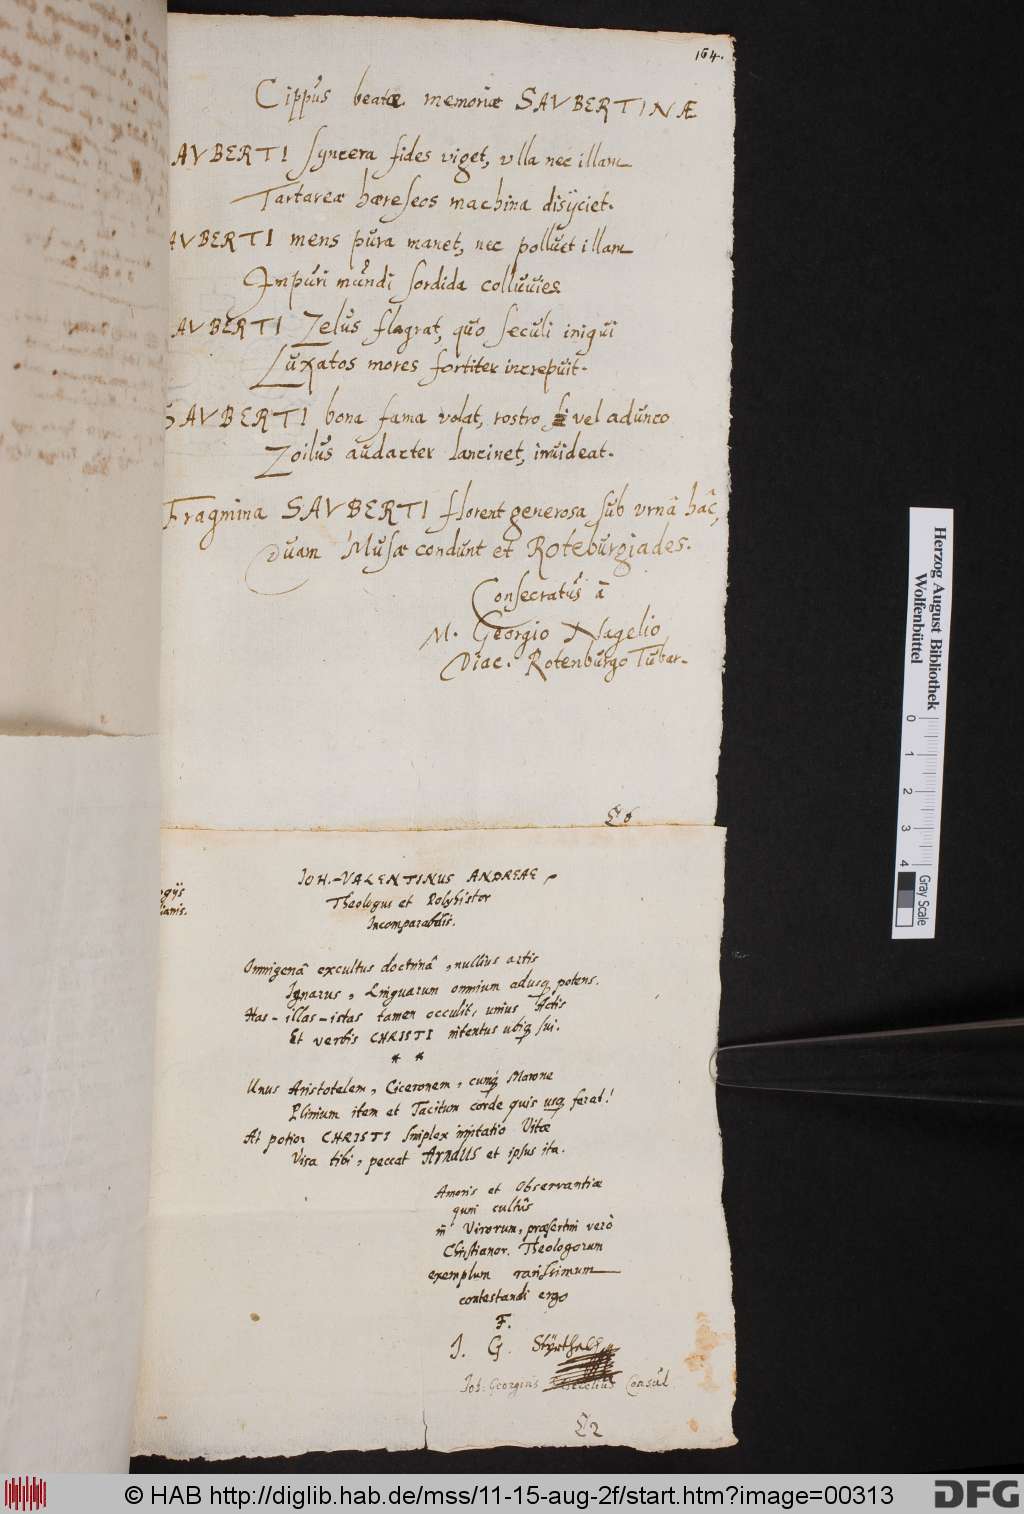 164.
Cippus beatæ memoriæ SAVBERTINÆ
AVBERTI syncera fides viget, vlla nec illam
Tartareæ hæreseos machina disijciet.
AVBERTI mens pura manet, nec polluet illam
Impuri mundi sordida colluuies
AVBERTI Zelus flagrat, quo seculi iniqui
Luxatos mores fortiter increpuit.
SAVBERTI bona fama volat, rostro si vel adunco
Zoilus audacter lancinet, inuideat.
Fragmina SAVBERTI florent generosa sub vrnâ hâc,
Quam Musæ condunt et Roteburgiades.
Consecratus â
M. Georgio Nagelio
Diac. Rotenburgo Tubar.
E6
ogijs
ianis.
IOH. VALENTINUS ANDREAE,
Theologus et Polyhistor
Incomparabilis.
Omnigenâ excultus doctrinâ, nullius artis
Ignarus, Linguarum omnium adusq potens.
Has-illas-istas tamen occulit, unius Actis
Et verbis CHRISTI nitentus ubiq sui.
* *
Unus Aristotelem, Ciceronem, cumq Marone
Plinium item et Tacitum corde quis usq ferat!
At potior CHRISTI simplex imitatio Vitæ
Visa tibi, peccat Arndius et ipsus ita.
Amoris et Observantiæ
qum cultûs
in Virorum, præsertim verò
Christianor. Theologorum
exemplum rarissimum
contestandi ergo
F.
J. G. Styrtzel
Joh. Georgius Consul.
E2
Herzog August Bibliothek
Wolfenbüttel
0 1 2 3 4
Gray Scale
© HAB http://diglib.hab.de/mss/11-15-aug-2f/start.htm?image=00313
DFG